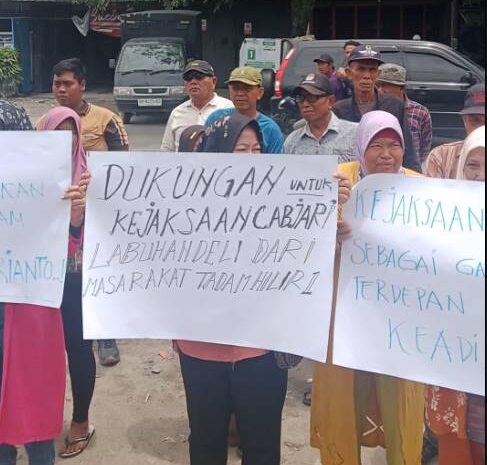 AKAN
AM
RIANTO..!
DUKUNGAN UNTUK
KEJAKSAAN CABJARI
LABUHAN DELI DARI
MASARAKAT TADAM HILIR 1
KEJAKSAAN
SEBAGAI GA
TERDEPAN
KEADI